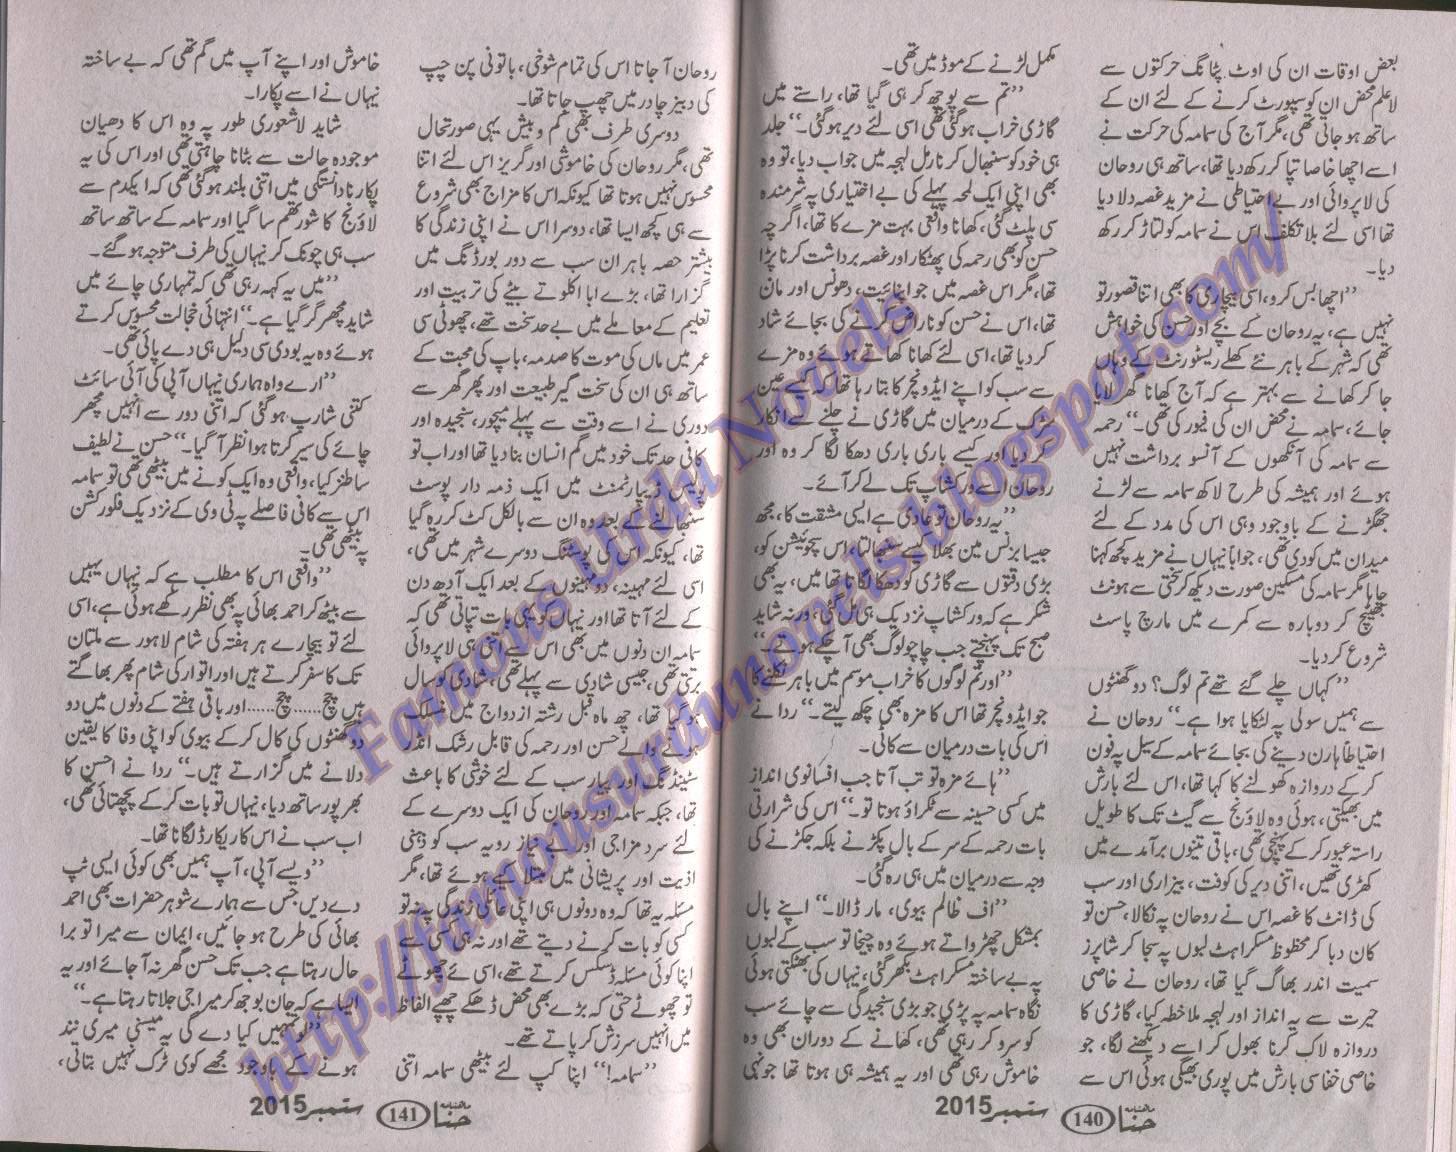 بعض اوقات ان کی اوٹ پٹانگ حرکتوں سے
لاعلم محض ان کو سپورٹ کرنے کے لئے ان کے
ساتھ ہو جاتی تھی، مگر آج کی سمامہ کی حرکت نے
اسے اچھا خاصا تپا کر رکھ دیا تھا، ساتھ ہی روحان
کی لاپروائی اور بے احتیاطی نے مزید غصہ دلا دیا
تھا اسی لئے بلا تکلف اس نے سمامہ کو لتاڑ کر رکھ
دیا۔
’’اچھا بس کرو، اسی بیچاری کا بھی اتنا قصور تو
نہیں ہے، یہ روحان کے بچے اور حسن کی خواہش
تھی کہ شہر کے باہر نئے کھلے ریسٹورنٹ کے وہاں
جا کر کھانے سے بہتر ہے کہ آج کھانا گھر لایا
جائے، سمامہ نے محض ان کی فیور کی تھی۔‘‘ رحمہ
سے سمامہ کی آنکھوں کے آنسو برداشت نہیں
ہوئے اور ہمیشہ کی طرح لاکھ سمامہ سے لڑنے
جھگڑنے کے باوجود وہی اس کی مدد کے لئے
میدان میں کودی تھی، جواباً نیہاں نے مزید کچھ کہنا
چاہا مگر سمامہ کی مسکین صورت دیکھ کر سختی سے ہونٹ
بھینچ کر دوبارہ سے کمرے میں مارچ پاسٹ
شروع کر دیا۔
’’کہاں چلے گئے تھے تم لوگ؟ دو گھنٹوں
سے ہمیں سولی پہ لٹکایا ہوا ہے۔‘‘ روحان نے
احتیاطاً ہارن دینے کی بجائے سمامہ کے سیل پہ فون
کر کے دروازہ کھولنے کا کہا تھا، اس لئے بارش
میں بھیگتی، ہوئی وہ لاؤنج سے گیٹ تک کا طویل
راستہ عبور کر کے پہنچی تھی، باقی تینوں برآمدے میں
کھڑی تھیں، اتنی دیر کی کوفت، بیزاری اور سب
کی ڈانٹ کا غصہ اس نے روحان پہ نکالا، حسن تو
کان دبا کر محظوظ مسکراہٹ لبوں پہ سجا کر شاپرز
سمیت اندر بھاگ گیا تھا، روحان نے خاصی
حیرت سے یہ انداز اور لہجہ ملاخطہ کیا، گاڑی کا
دروازہ لاک کرنا بھول کر اسے دیکھنے لگا، جو
خاصی خفا سی بارش میں پوری بھیگی ہوئی اس سے
مکمل لڑنے کے موڈ میں تھی۔
’’تم سے پوچھ کر ہی گیا تھا، راستے میں
گاڑی خراب ہو گئی تھی اسی لئے دیر ہو گئی۔‘‘ جلد
ہی خود کو سنبھال کر نارمل لہجہ میں جواب دیا، تو وہ
بھی اپنی ایک لمحہ پہلے کی بے اختیاری پہ شرمندہ
سی پلٹ گئی، کھانا واقعی بہت مزے کا تھا، اگر چہ
حسن کو بھی رحمہ کی پھٹکار اور غصہ برداشت کرنا پڑا
تھا، مگر اس غصہ میں جو اپنائیت، دھونس اور مان
تھا، اس نے حسن کو ناراض کرنے کی بجائے شاد
کر دیا تھا، اسی لئے کھانا کھاتے ہوئے وہ مزے
سے سب کو اپنے ایڈونچر کا بتا رہا تھا کہ کیسے عین
سڑک کے درمیان میں گاڑی نے چلنے سے انکار
کر دیا اور کیسے باری باری دھکا لگا کر وہ اور
روحان اسے ورکشاپ تک لے کر آئے۔
’’یہ روحان تو عادی ہے ایسی مشقت کا، مجھ
جیسا بزنس مین بھلا کیسے سنبھالتا، اس سچوئیشن کو،
بڑی دقتوں سے گاڑی کو دھکا لگاتا تھا میں، یہ بھی
شکر ہے کہ ورکشاپ نزدیک ہی مل گئی، ورنہ شاید
صبح تک پہنچتے جب چاچو لوگ بھی آ چکے ہوتے۔‘‘
’’اور تم لوگوں کا خراب موسم میں باہر نکلنے کا
جو ایڈونچر تھا اس کا مزہ بھی چکھ لیتے۔‘‘ ردا نے
اس کی بات درمیان سے کاٹی۔
’’ہائے مزہ تو تب آتا جب افسانوی انداز
میں کسی حسینہ سے ٹکراؤ ہوتا تو۔‘‘ اس کی شرارتی
بات رحمہ کے سر کے بال پکڑنے بلکہ جکڑنے کی
وجہ سے درمیان میں ہی رہ گئی۔
’’اف ظالم بیوی، مار ڈالا۔‘‘ اپنے بال
بمشکل چھڑواتے ہوئے وہ چیخا تو سب کے لبوں
پہ بے ساختہ مسکراہٹ بکھر گئی، نیہاں کی بھٹکتی ہوئی
نگاہ سمامہ پہ پڑی جو بڑی سنجیدگی سے چائے سب
کو سرو کر رہی تھی، کھانے کے دوران بھی وہ
خاموش رہی تھی اور یہ ہمیشہ ہی ہوتا تھا جونہی
ماہنامہ حنا 140 ستمبر 2015
روحان آ جاتا اس کی تمام شوخی، باتونی پن چپ
کی دبیز چادر میں چھپ جاتا تھا۔
دوسری طرف بھی کم و بیش یہی صورتحال
تھی، مگر روحان کی خاموشی اور گریز اس لئے اتنا
محسوس نہیں ہوتا تھا کیونکہ اس کا مزاج بھی شروع
سے ہی کچھ ایسا تھا، دوسرا اس نے اپنی زندگی کا
بیشتر حصہ باہر ان سب سے دور بورڈنگ میں
گزارا تھا، بڑے ابا اکلوتے بیٹے کی تربیت اور
تعلیم کے معاملے میں بے حد سخت تھے، چھوٹی سی
عمر میں ماں کی موت کا صدمہ، باپ کی محبت کے
ساتھ ہی ان کی سخت گیر طبیعت اور پھر گھر سے
دوری نے اسے وقت سے پہلے میچور، سنجیدہ اور
کافی حد تک خود میں گم انسان بنا دیا تھا اور اب تو
پولیس ڈیپارٹمنٹ میں ایک ذمہ دار پوسٹ
سنبھالنے کے بعد وہ ان سے بالکل کٹ کر رہ گیا
تھا، کیونکہ اس کی پوسٹنگ دوسرے شہر میں تھی،
اسی لئے مہینہ، دو مہینوں کے بعد ایک آدھ دن
کے لئے آتا تھا اور نیہاں کو یہی بات تپاتی تھی کہ
سمامہ ان دنوں میں بھی اس سے اتنی ہی لاپروائی
برتتی تھی، جیسی شادی سے پہلے تھی، شادی کو سال
ہو گیا تھا، چھ ماہ قبل رشتہ ازدواج میں منسلک
ہونے والے حسن اور رحمہ کی قابل رشک انڈر
سٹینڈنگ اور پیار سب کے لئے خوشی کا باعث
تھا، جبکہ سمامہ اور روحان کی ایک دوسرے کے
لئے سرد مزاجی اور بے نیاز رویہ سب کو ذہنی
اذیت اور پریشانی میں مبتلا کیے ہوئے تھا، مگر
مسئلہ یہ تھا کہ وہ دونوں ہی اپنی عائلی زندگی پہ نہ تو
کسی کو بات کرنے دیتے تھے اور نہ ہی کسی سے
اپنا کوئی مسئلہ ڈسکس کرتے تھے، اسی لئے چھوٹے
تو چھوٹے حتی کہ بڑے بھی محض ڈھکے چھپے الفاظ
میں انہیں سرزش کر پاتے تھے۔
’’سمامہ!‘‘ اپنا کپ لئے بیٹھی سمامہ اتنی
خاموش اور اپنے آپ میں گم تھی کہ بے ساختہ
نیہاں نے اسے پکارا۔
شاید لاشعوری طور پہ وہ اس کا دھیان
موجودہ حالت سے ہٹانا چاہتی تھی اور اس کی یہ
پکار نادانستگی میں اتنی بلند ہو گئی تھی کہ ایکدم سے
لاؤنج کا شور تھم سا گیا اور سمامہ کے ساتھ ساتھ
سب ہی چونک کر نیہاں کی طرف متوجہ ہو گئے۔
’’میں یہ کہہ رہی تھی کہ تمہاری چائے میں
شاید مچھر گر گیا ہے۔‘‘ انتہائی خجالت محسوس کرتے
ہوئے وہ یہ بودی سی دلیل ہی دے پائی تھی۔
’’ارے واہ ہماری نیہاں آپی کی آئی سائٹ
کتنی شارپ ہو گئی کہ اتنی دور سے انہیں مچھر
چائے کی سیر کرتا ہوا نظر آ گیا۔‘‘ حسن نے لطیف
سا طنز کیا، واقعی وہ ایک کونے میں بیٹھی تھی تو سمامہ
اس سے کافی فاصلے پہ ٹی وی کے نزدیک فلور کشن
پہ بیٹھی تھی۔
’’واقعی اس کا مطلب ہے کہ نیہاں یہیں
سے بیٹھ کر احمد بھائی پہ بھی نظر رکھے ہوئی ہے، اسی
لئے تو بیچارے ہر ہفتہ کی شام لاہور سے ملتان
تک کا سفر کرتے ہیں اور اتوار کی شام پھر بھاگتے
ہیں چچ...... چچ...... اور باقی ہفتے کے دنوں میں دو
دو گھنٹوں کی کال کر کے بیوی کو اپنی وفا کا یقین
دلانے میں گزارتے ہیں۔‘‘ ردا نے احسن کا
بھرپور ساتھ دیا، نیہاں تو بات کر کے پچھتائی تھی،
اب سب نے اس کا ریکارڈ لگانا تھا۔
’’ویسے آپی، آپ ہمیں بھی کوئی ایسی ٹپ
دے دیں جس سے ہمارے شوہر حضرات بھی احمد
بھائی کی طرح ہو جائیں، ایمان سے میرا تو برا
حال رہتا ہے جب تک حسن گھر نہ آ جائے اور یہ
ایسا ہے کہ جان بوجھ کر میرا جی جلاتا رہتا ہے۔‘‘
’’لو تمہیں کیا دے گی یہ میسنی میری نیند
ہونے کے باوجود مجھے کوئی ٹرک نہیں بتاتی،
ماہنامہ حنا 141 ستمبر 2015
Famous Urdu Novels
http://famousurdunovels.blogspot.com/